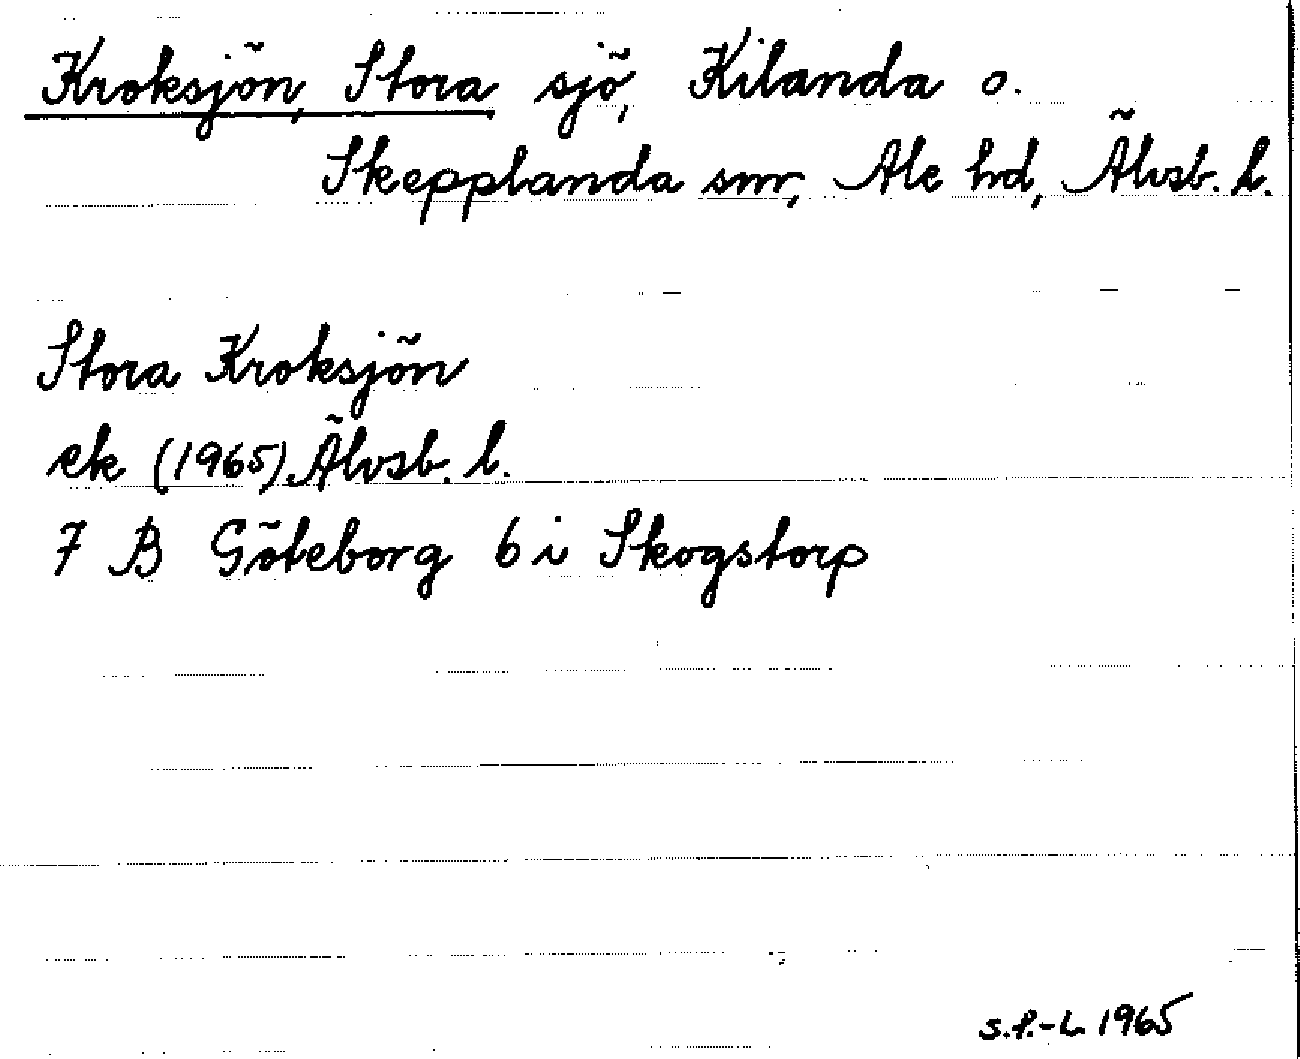 Kroksjön, Stora sjö, Kilanda o.
Skepplanda snr, Ale hd, Älvsb. l.
Stora Kroksjön
ek (1965) Älvsb. l.
7 B Göteborg 6 i Skogstorp
S.P.-L 1965